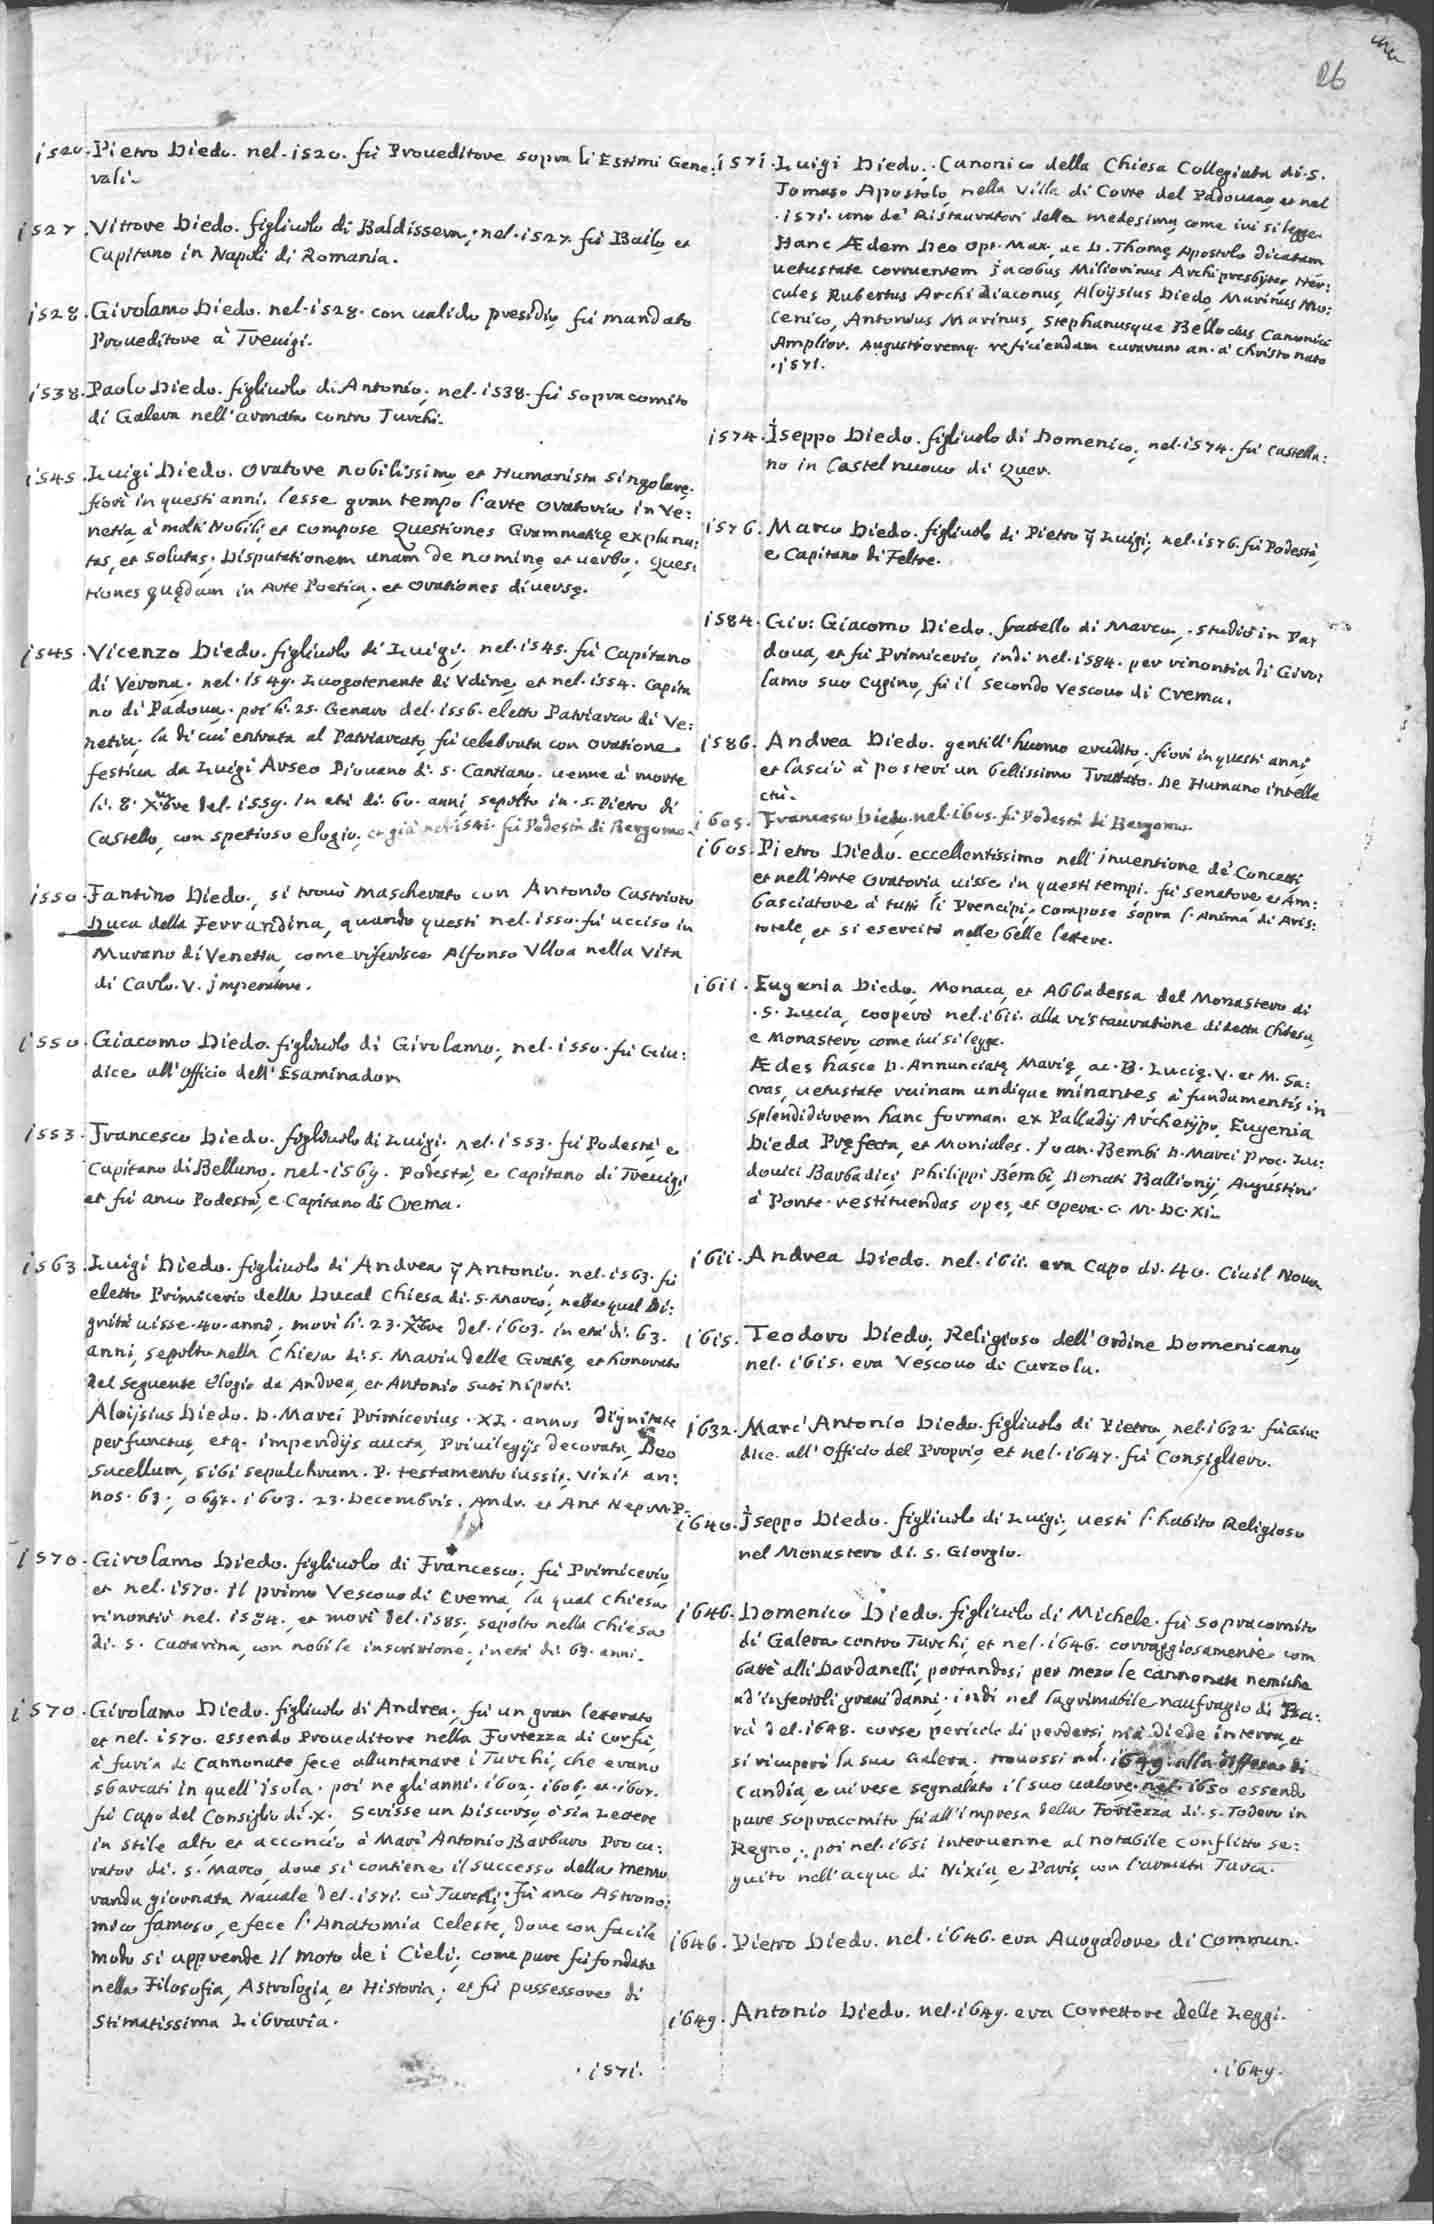 26
1520. Pietro Diedo. nel. 1520. fù Proueditore sopra li Estimi Gene:
rali.
1527. Vittore Diedo. figliuolo di Baldissera; nel. 1527. fù Bailo, et
Capitano in Napoli di Romania.
1528. Girolamo Diedo. nel. 1528. con ualido presidio, fù mandato
Proueditore à Treuigi.
1538. Paolo Diedo. figliuolo di Antonio; nel. 1538. fù sopracomito
di Galera nell'armata contro Turchi.
1545. Luigi Diedo. Oratore nobilissimo, et Humanista singolare,
fiorì in questi anni; lesse gran tempo l'arte oratoria in Ve:
netia, à molti Nobili, et compose Questiones Grammaticę explana:
tas, et solutas; Disputationem unam de nomine, et uerbo; Ques:
tiones quędam in Arte Poetica; et Orationes diuersę.
1545. Vicenzo Diedo. figliuolo di Luigi; nel. 1545. fù Capitano
di Verona. nel. 1549. Luogotenente di Vdine, et nel. 1554. Capita
no di Padoua. poi li. 25. Genaro del. 1556. eletto Patriarca di Ve:
netia; la di cui entrata al Patriarcato, fù celebrata con oratione
festiua da Luigi Arseo Piouano di. S. Cantiano; uenne à morte
li. 8. Xbre del. 1559. in età di. 60. anni, sepolto in. S. Pietro di
Castello, con spetioso elogio; et già nel. 1541. fù Podestà di Bergomo.
1550. Fantino Diedo., si trouò mascherato con Antonio Castrioto
Duca della Ferrandina, quando questi nel. 1550. fù ucciso in
Murano di Venetia, come riferisce Alfonso Vlloa nella Vita
di Carlo. V. imperatore.
1550. Giacomo Diedo. figliuolo di Girolamo; nel. 1550. fù Giu:
dice all'Officio dell'Esaminador.
1553. Francesco Diedo. figliuolo di Luigi; nel. 1553. fù Podestà, e
Capitano di Belluno; nel. 1569. Podestà, e Capitano di Treuigi,
et fù anco Podestà, e Capitano di Crema.
1563. Luigi Diedo. figliuolo di Andrea q Antonio; nel. 1563. fù
eletto Primicerio della Ducal Chiesa di. S. Marco; nella qual Di:
gnità uisse. 40. anni; morì li. 23. Xbre del. 1603. in età di. 63.
anni, sepolto nella Chiesa di. S. Maria delle Gratie, et honorato
del seguente elogio da Andrea, et Antonio suoi nipoti.
Aloijsius Diedo. D. Marci Primicerius. XL. annos dignitate
perfunctus, etq. imperidijs aucta, Priuilegijs decorata, Deo
sacellum, sibi sepulchrum. P. testamento iussit. Vixit an:
nos. 63.; 1603. 23. Decembris. Andr. et Ant. Nep. M. P.
1570. Girolamo Diedo. figliuolo di Francesco; fù Primicerio,
et nel. 1570. il primo Vescouo di Crema, la qual Chiesa
rinontiò nel. 1584. et morì del. 1585. sepolto nella Chiesa
di. S. Cattarina, con nobile inscrittione; in età di. 69. anni.
1570. Girolamo Diedo. figliuolo di Andrea; fù un gran leterato,
et nel. 1570. essendo Proueditore nella Fortezza di Corfù,
à furia di Cannonate fece alluntanare i Turchi, che erano
sbarcati in quell'isola. poi ne gli anni. 1602. 1606. et. 1607.
fù Capo del Consiglio di. X. Scrisse un Discorso, ò sia Lettere
in stile alto, et acconcio à Marc'Antonio Barbaro Procu:
rator di. S. Marco, doue si contiene il successo della memo
randa giornata Nauale del. 1571. co' Turchi. Fù anco Astrono:
mico famoso, e fece l'Anatomia Celeste, doue con facile
modo si apprende il moto de i Cieli; come pure fù fondato
nella Filosofia, Astrologia, et Historia; et fù possessore di
Stimatissima Libraria.
.1571.
1571. Luigi Diedo.; Canonico della Chiesa Collegiata di. S.
Tomaso Apostolo, nella Villa di Corte del Padouano, et nel
.1571. uno de' Ristauratori della medesima, come iui si legge.
Hanc Ædem Deo Opt. Max. ac D. Thomę Apostolo dicatam
uetustate corruentem Jacobus Miliorinus Archipresbyter, Her:
cules Rubertus Archidiaconus, Aloÿsius Diedo, Marinus Mo:
cenico, Antonius Marinus, Stephanusque Bellocius Canonici
Amplior. Augustioremq. reficiendam curarunt an. à Christo nato
.1571.
1574. Iseppo Diedo. figliuolo di Domenico; nel. 1574. fù Castella:
no in Castel nuouo di Quer.
1576. Marco Diedo. figliuolo di Pietro q Luigi; nel. 1576. fù Podestà,
e Capitano di Feltre.
1584. Gio: Giacomo Diedo. fratello di Marco., studiò in Pa
doua, et fù Primicerio, indi nel. 1584. per rinontia di Giro:
lamo suo Cugino, fù il secondo Vescouo di Crema.
1586. Andrea Diedo. gentill'huomo erudito, fiorì in questi anni,
et lasciò à posteri un bellissimo Trattato. De Humano intelle
ctù.
1605. Francesco Diedo. nel. 1605. fù Podestà di Bergomo.
1605. Pietro Diedo. eccellentissimo nell'inuentione de' Concetti,
et nell'Arte Oratoria, uisse in questi tempi, fù Senatore, et Am:
basciatore à tutti li Prencipi, compose sopra l'Anima di Aris:
totele, et si esercitò nelle belle lettere.
1611. Eugenia Diedo; Monaca, et Abbadessa del Monastero di
.S. Lucia, cooperò nel. 1611. alla ristauratione di detta Chiesa,
e Monastero, come iui si legge.
Ædes hasce D. Annunciatę Marię, ac. B. Lucię. V. et M. Sa:
cras, uetustate ruinam undique minantes à fundamentis in
splendidiorem hanc forman. ex Palladij Archetijpo, Eugenia
Dieda Pręfecta, et Moniales. Joan. Bembi D. Marci Proc. Lu:
douici Barbadici, Philippi Bembi, Donati Ballionij, Augustini
à Ponte. restituendas opes, et opera. c. M. DC. XI.
1611. Andrea Diedo. nel. 1611. era Capo di. 40. Ciuil Nouo.
1615. Teodoro Diedo; Religioso dell'Ordine Domenicano,
nel. 1615. era Vescouo di Curzola.
1632. Marc'Antonio Diedo. figliuolo di Pietro, nel. 1632. fù Giu:
dice. all'Officio del Proprio, et nel. 1647. fù Consigliero.
1640. Iseppo Diedo. figliuolo di Luigi; uestì l'habito Religioso
nel Monastero di. S. Giorgio.
1646. Domenico Diedo. figliuolo di Michele. fù sopracomito
di Galera contro Turchi, et nel. 1646. corraggiosamente com
battè alli Dardanelli, portandosi per mezo le cannonate nemiche
ad inferirli graui danni; indi nel lagrimabile naufragio di Psa:
rà del. 1648. corse pericolo di perdersi, mà diede in terra, et
si ricuperò la sua Galera; trouossi nel. 1649. alla diffesa di
Candia, e ui rese segnalato il suo ualore. nel. 1650 essendo
pure sopracomito fù all'impresa della Fortezza di. S. Todoro in
Regno.; poi nel. 1651 interuenne al notabile conflitto se:
guito nell'acque di Nixia, e Paris, con l'armata Turca.
1646. Pietro Diedo. nel. 1646. era Auogadore di Commun.
1649. Antonio Diedo. nel. 1649. era Correttore delle Leggi.
.1649.